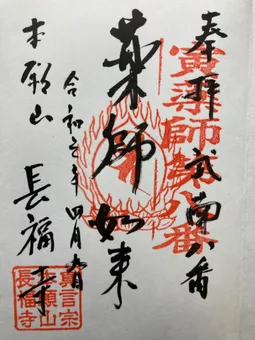 奉拝 武南八番
寅薬師第八番
薬師如来
令和四年四月
本願山 長福寺
真言宗
本願山
長福寺